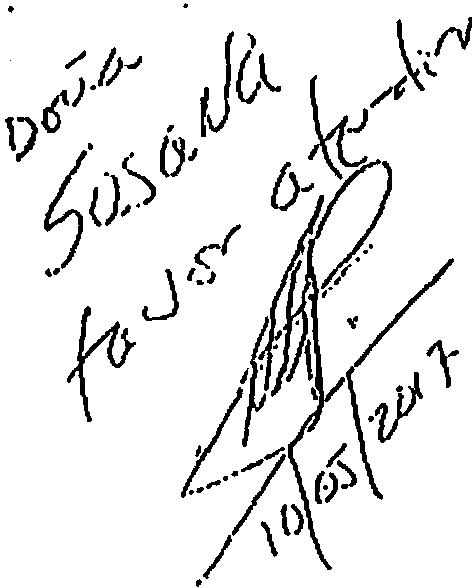 Doña
Susana
favor atender
10/05/2017